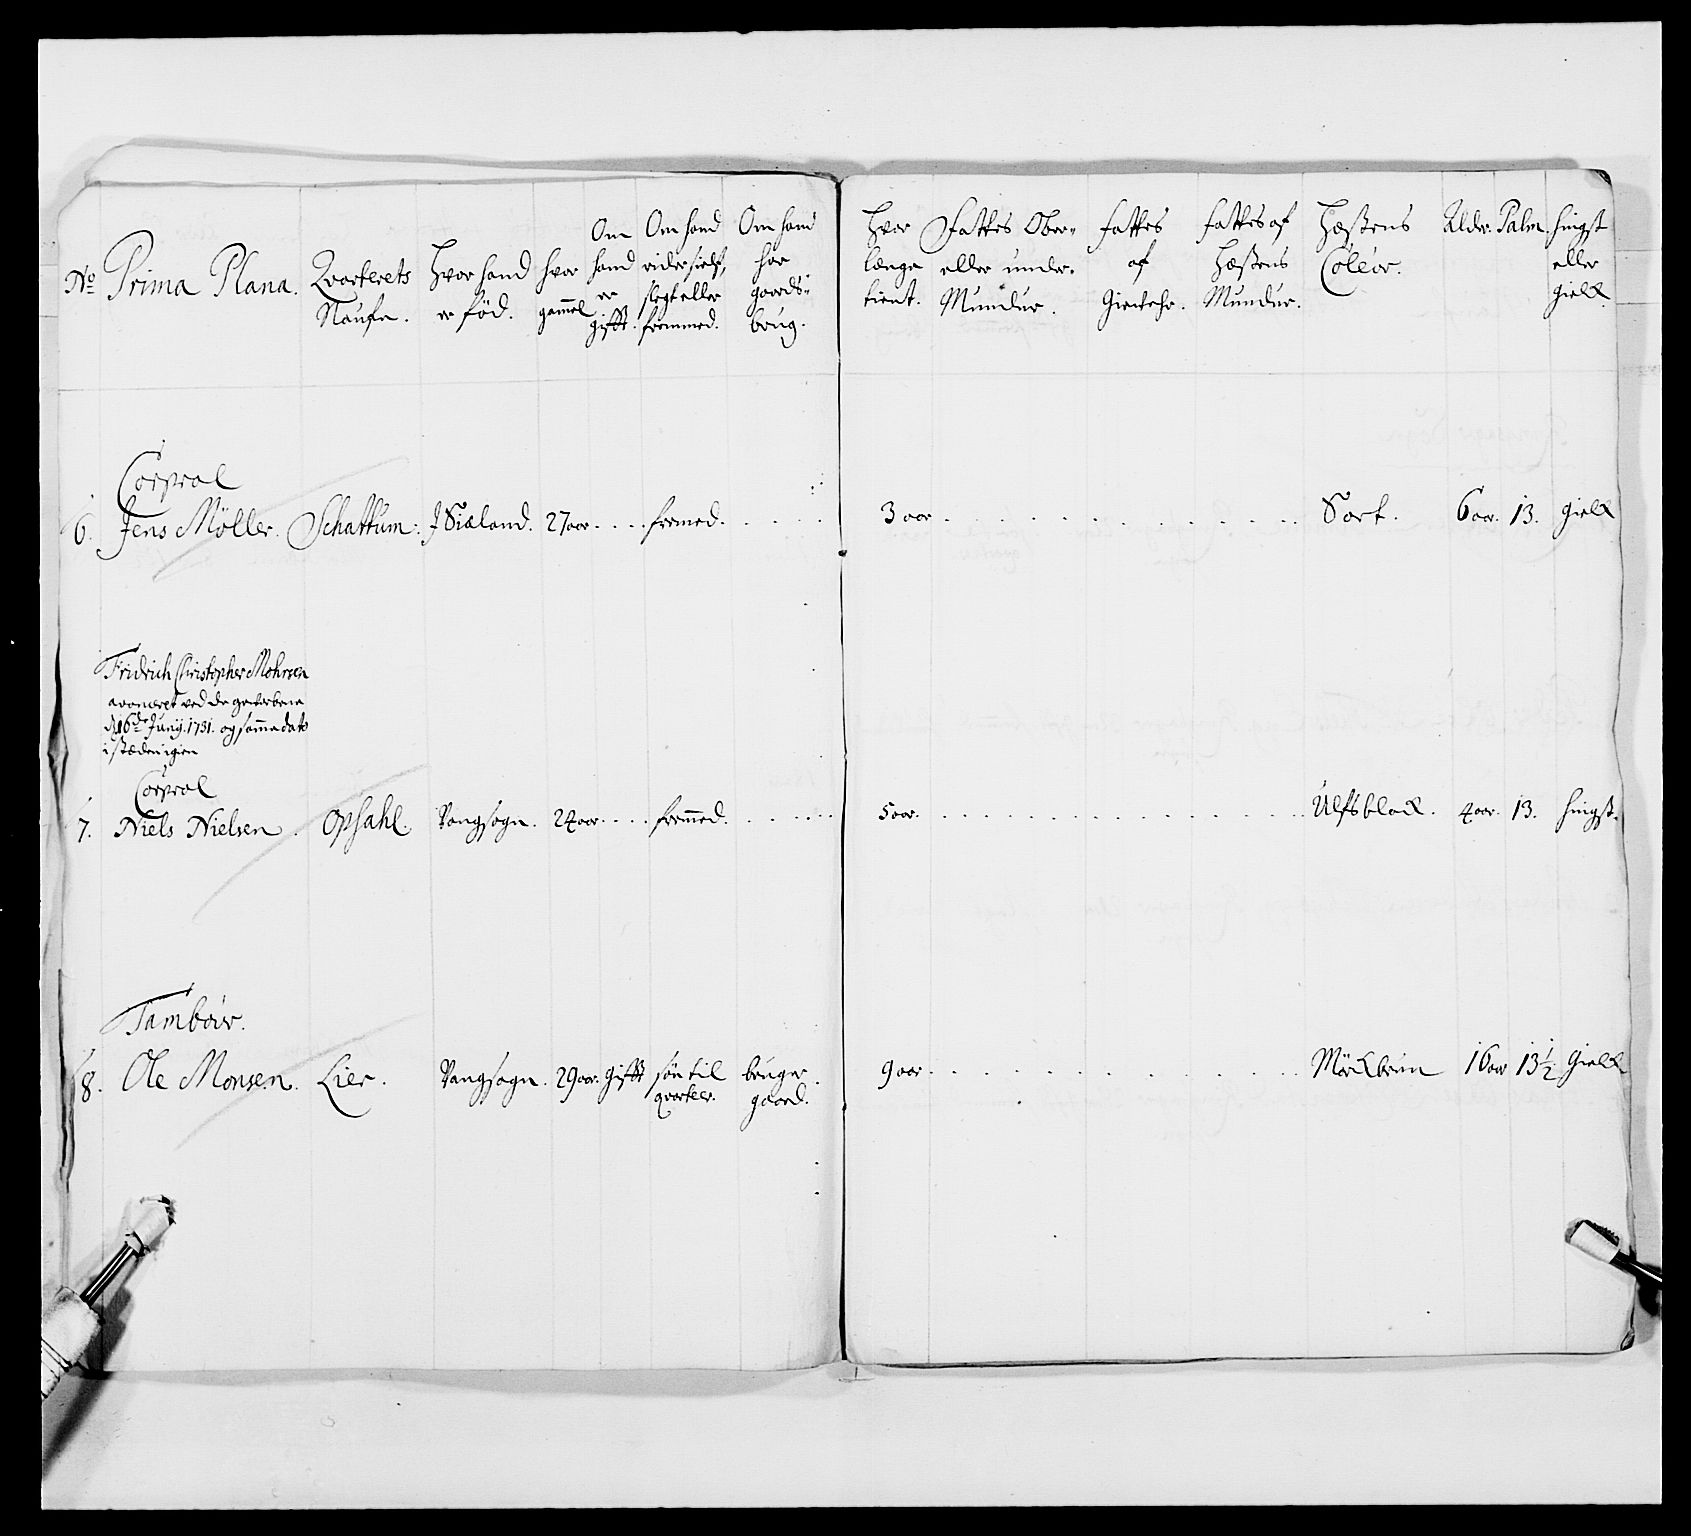 No Prima Plana. Qvarterets Naufn. Hvor hand er född. hvor gammel Om hand er gifft. Om hand rider sielf, slegt eller fremmed. Om hand har gaards= brug.
Hvor længe tient. Fattes Ober= eller under. Mundur. fattes af Giewehr. fattes af Hæstens Mundur. Hæstens Coleör. Alder. Palm. hingst eller gield.
Corpral
6. Jens Möller. Schattum. J Siæland. 27 aar. fremed.
3 aar Sort. 6 aar. 13. gield
Fridrich Christopher Mohrsen
avanceret ved de geworbene
d. 16de Junij. 1731. og samme dato
i stæden igien
Corpral
7. Niels Nielsen. Opsahl. Vangsogn. 24 aar. fremmed.
5 aar. Ulfsblack. 4 aar. 13. hingst.
Tambour.
8. Ole Monsen. Lier. Vangsogn. 29 aar. gifft sön til qvarteer. bruger gaard.
9 aar. Mörckbrun 16 aar 13 1/2 gield